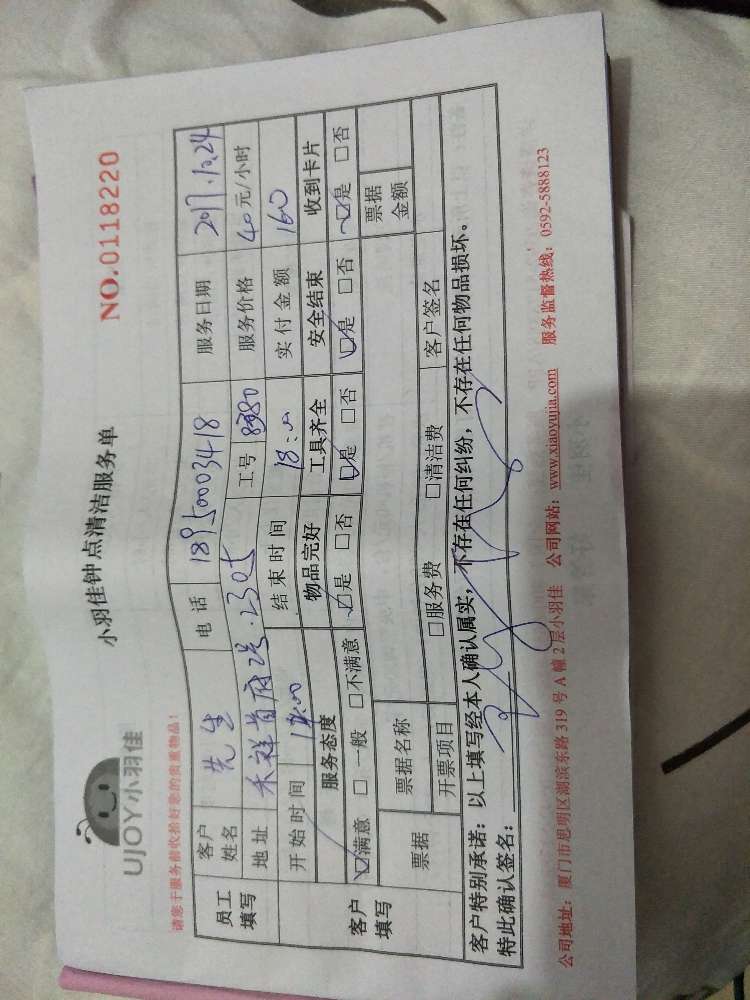 UJOY小羽佳
小羽佳钟点清洁服务单
NO.0118220
请您于服务前收拾好您的贵重物品!
员工填写
客户姓名 先生 电话 18950003418 服务日期 2017.10.24
地址 禾祥首府 2305 工号 8980 服务价格 40元/小时
开始时间 14:00 结束时间 18:00 实付金额 160
客户填写
服务态度 物品完好 工具齐全 安全结束 收到卡片
☑满意 □一般 □不满意 ☑是 □否 ☑是 □否 ☑是 □否 ☑是 □否
票据 票据名称 票据金额
开票项目 □服务费 □清洁费 客户签名
客户特别承诺:以上填写经本人确认属实,不存在任何纠纷,不存在任何物品损坏。
特此确认签名:
公司地址:厦门市思明区湖滨东路319号A幢2层小羽佳 公司网站:www.xiaoyujia.com 服务监督热线:0592-5888123